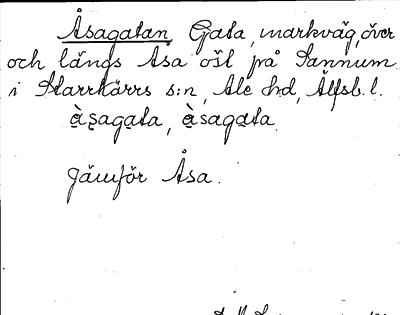 Åsagatan, Gata, markväg, över
och längs Åsa öst på Tannum
i Starrkärrs s:n, Ale hd, Älfsb. l.
àsagata, àsagata.
Jämför Åsa.